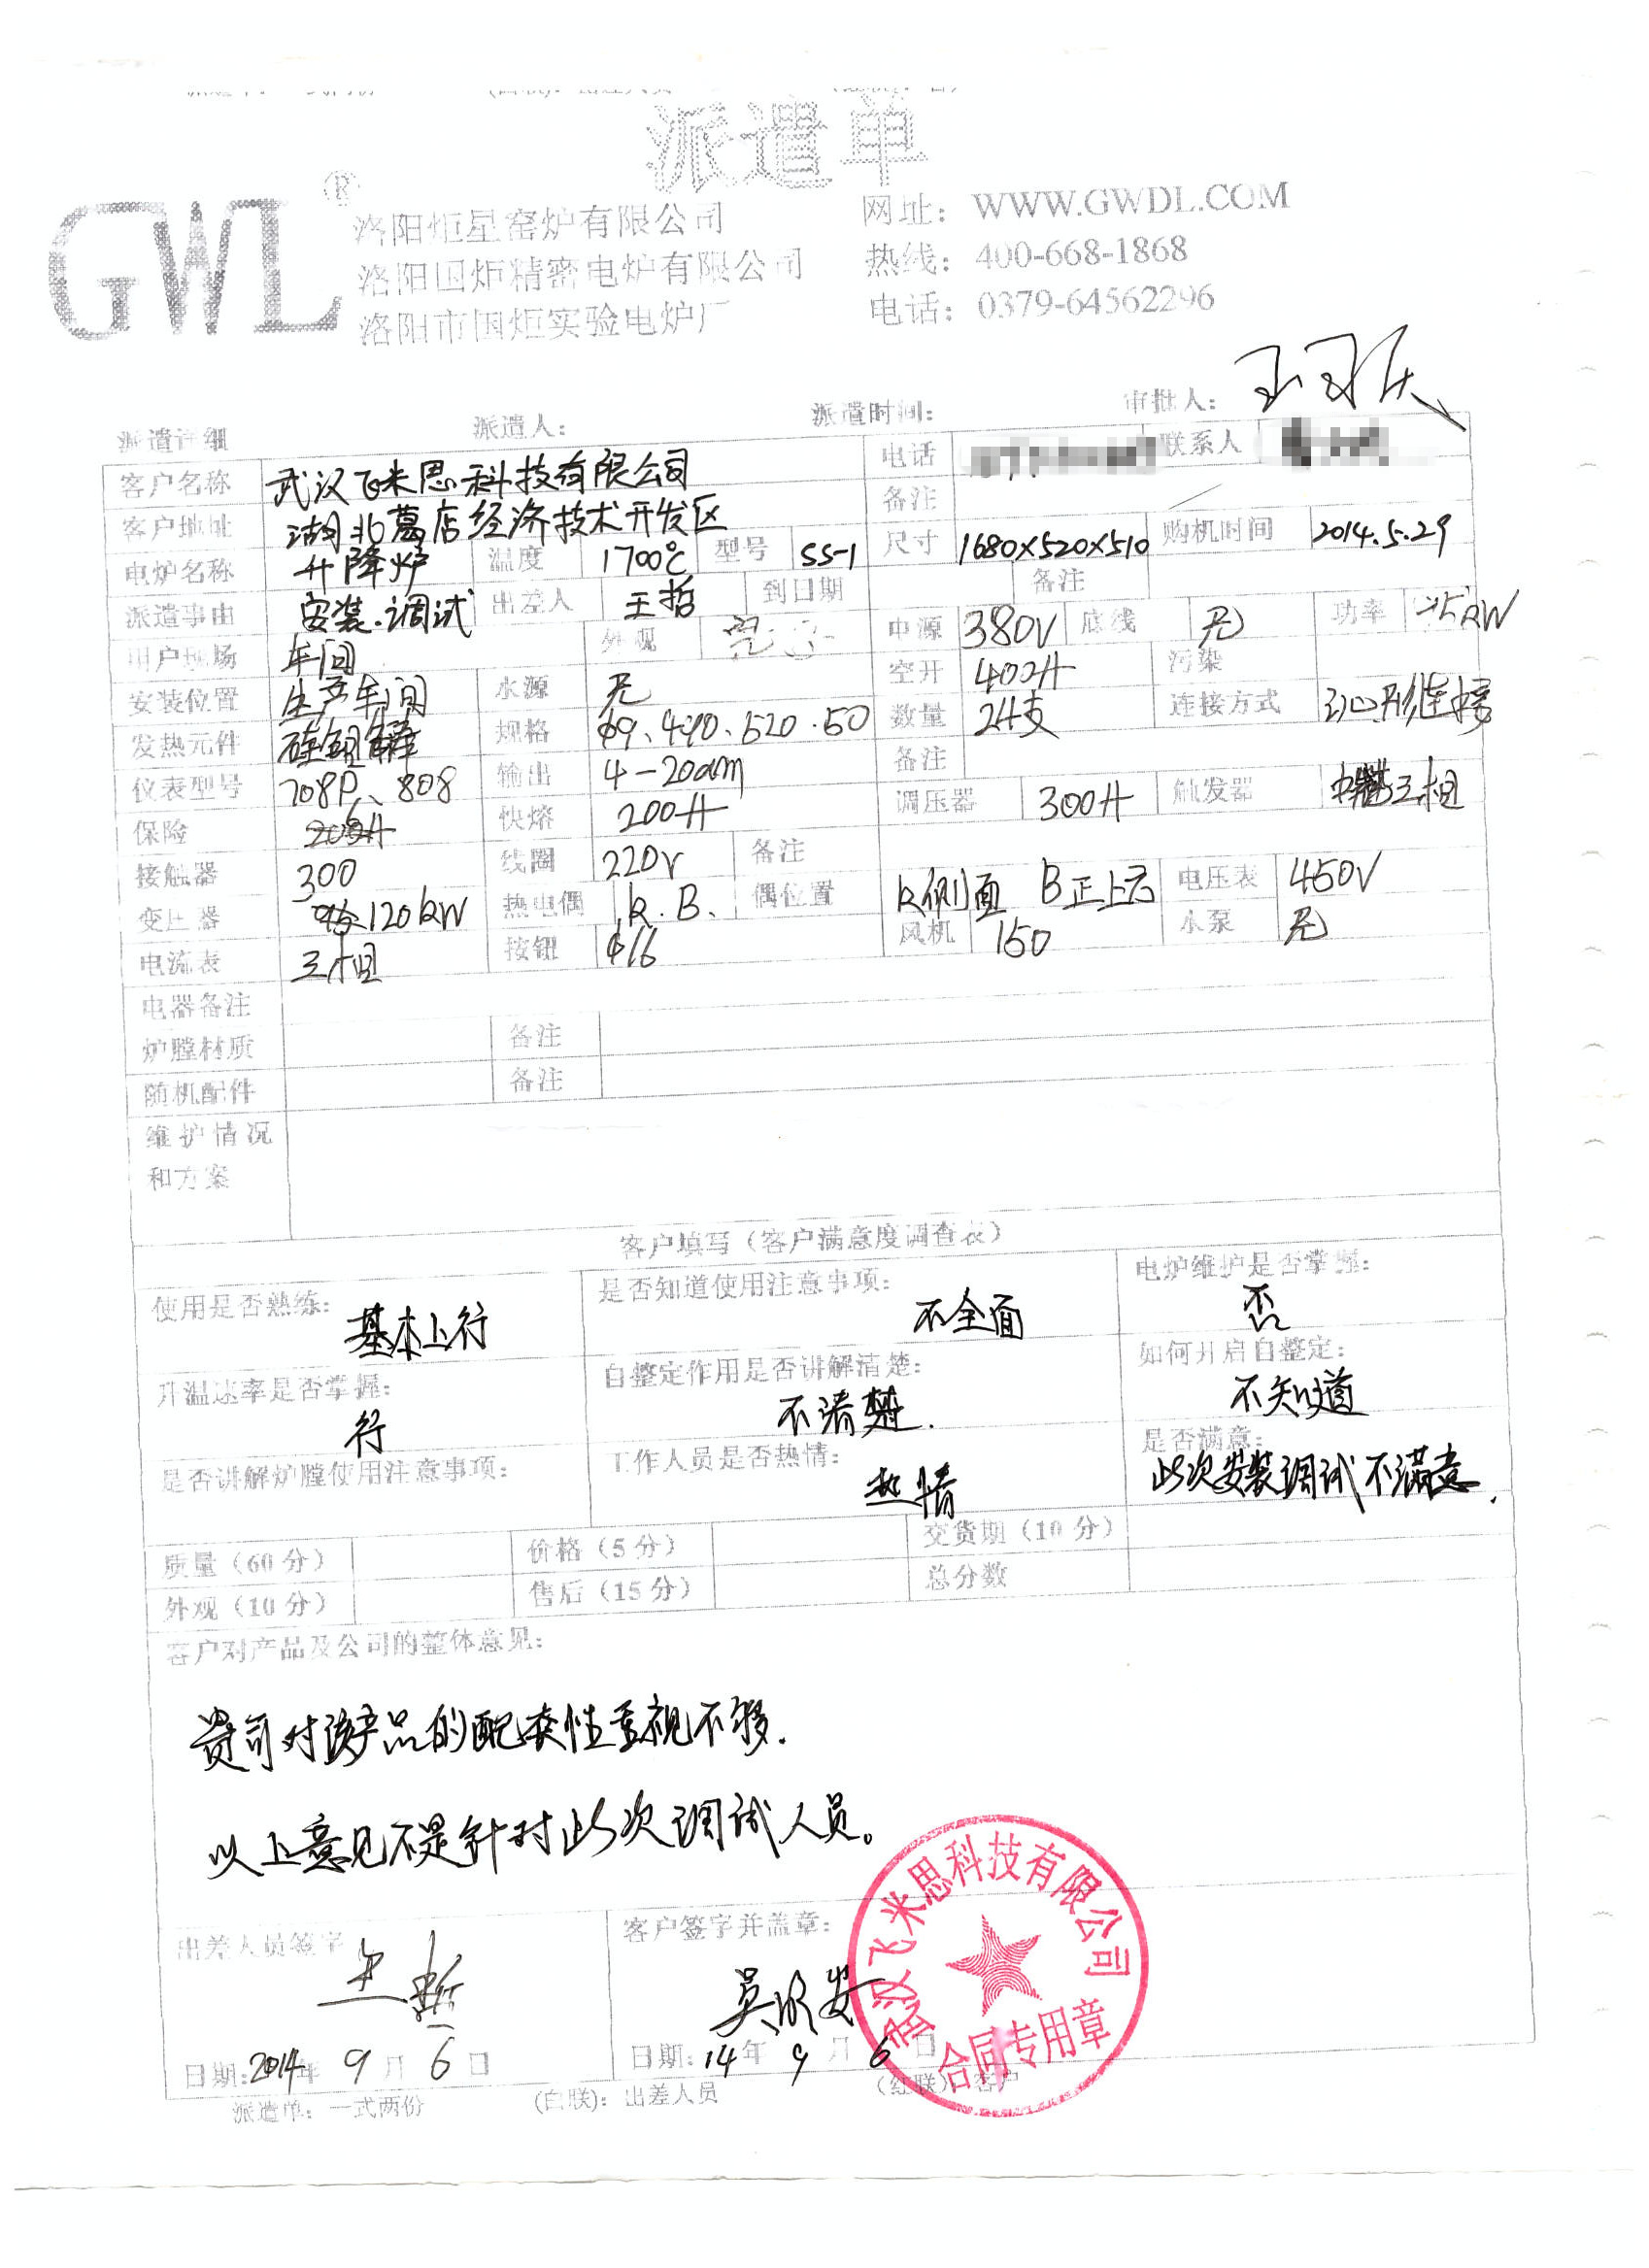 派遣单
GWL®
洛阳炬星窑炉有限公司 网址: WWW.GWDL.COM
洛阳国炬精密电炉有限公司 热线: 400-668-1868
洛阳市国炬实验电炉厂 电话: 0379-64562296
派遣详细 派遣人: 派遣时间: 审批人:
客户名称 武汉飞米思科技有限公司 电话 联系人
客户地址 湖北葛店经济技术开发区 备注
电炉名称 升降炉 温度 1700℃ 型号 SS-1 尺寸 1680×520×510 购机时间 2014.5.29
派遣事由 安装.调试 出差人 王哲 到日期 备注
用户现场 车间 外观 电源 380V 底线 无 功率
安装位置 生产车间 水源 无 空开 400A 污染
发热元件 硅钼棒 规格 φ9、490、520.50 数量 24支 连接方式
仪表型号 708P、808 输出 4-20am 备注
保险 快熔 200A 调压器 300A 触发器 三相
接触器 300 线圈 220V 备注
变压器 120kW 热电偶 k.B、 偶位置 k侧面 B正上方 电压表 450V
电流表 三相 按钮 φ16 风机 150 水泵 无
电器备注
炉膛材质 备注
随机配件 备注
维护情况
和方案
客户填写（客户满意度调查表）
使用是否熟练: 基本上行 是否知道使用注意事项: 不全面 电炉维护是否掌握: 否
升温速率是否掌握: 行 自整定作用是否讲解清楚: 不清楚. 如何开启自整定: 不知道
是否讲解炉膛使用注意事项: 工作人员是否热情: 热情 是否满意: 此次安装调试不满意.
质量（60分） 价格（5分） 交货期（10分）
外观（10分） 售后（15分） 总分数
客户对产品及公司的整体意见:
贵司对该产品的配套性重视不够.
以上意见不是针对此次调试人员。
出差人员签字 王哲 客户签字并盖章:
武汉飞米思科技有限公司
合同专用章
日期:2014年 9月 6日 日期:14年 9月 6日
派遣单: 一式两份 (白联): 出差人员 (红联): 客户